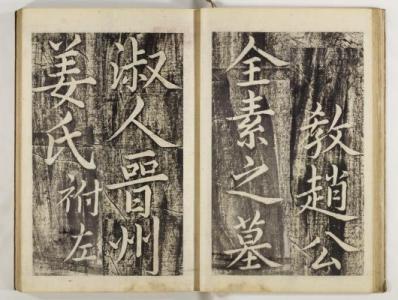 教趙公
全素之墓
淑人晋州
姜氏祔左